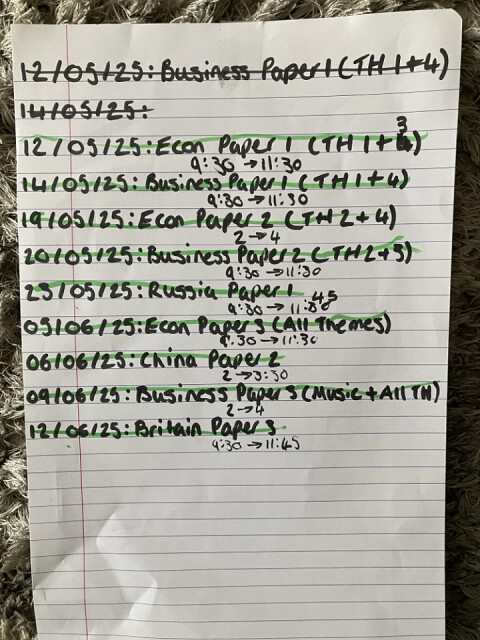 12/05/25: Business Paper 1 (TH 1+4)
14/05/25:
12/05/25: Econ Paper 1 (TH 1+3)
9:30 → 11:30
14/05/25: Business Paper 1 (TH 1+4)
9:30 → 11:30
19/05/25: Econ Paper 2 (TH 2+4)
2 → 4
20/05/25: Business Paper 2 (TH 2+3)
9:30 → 11:30
23/05/25: Russia Paper 1
9:30 → 11:45
03/06/25: Econ Paper 3 (All Themes)
9:30 → 11:30
06/06/25: China Paper 2
2 → 3:30
09/06/25: Business Paper 3 (Music + All TH)
2 → 4
12/06/25: Britain Paper 3
9:30 → 11:45